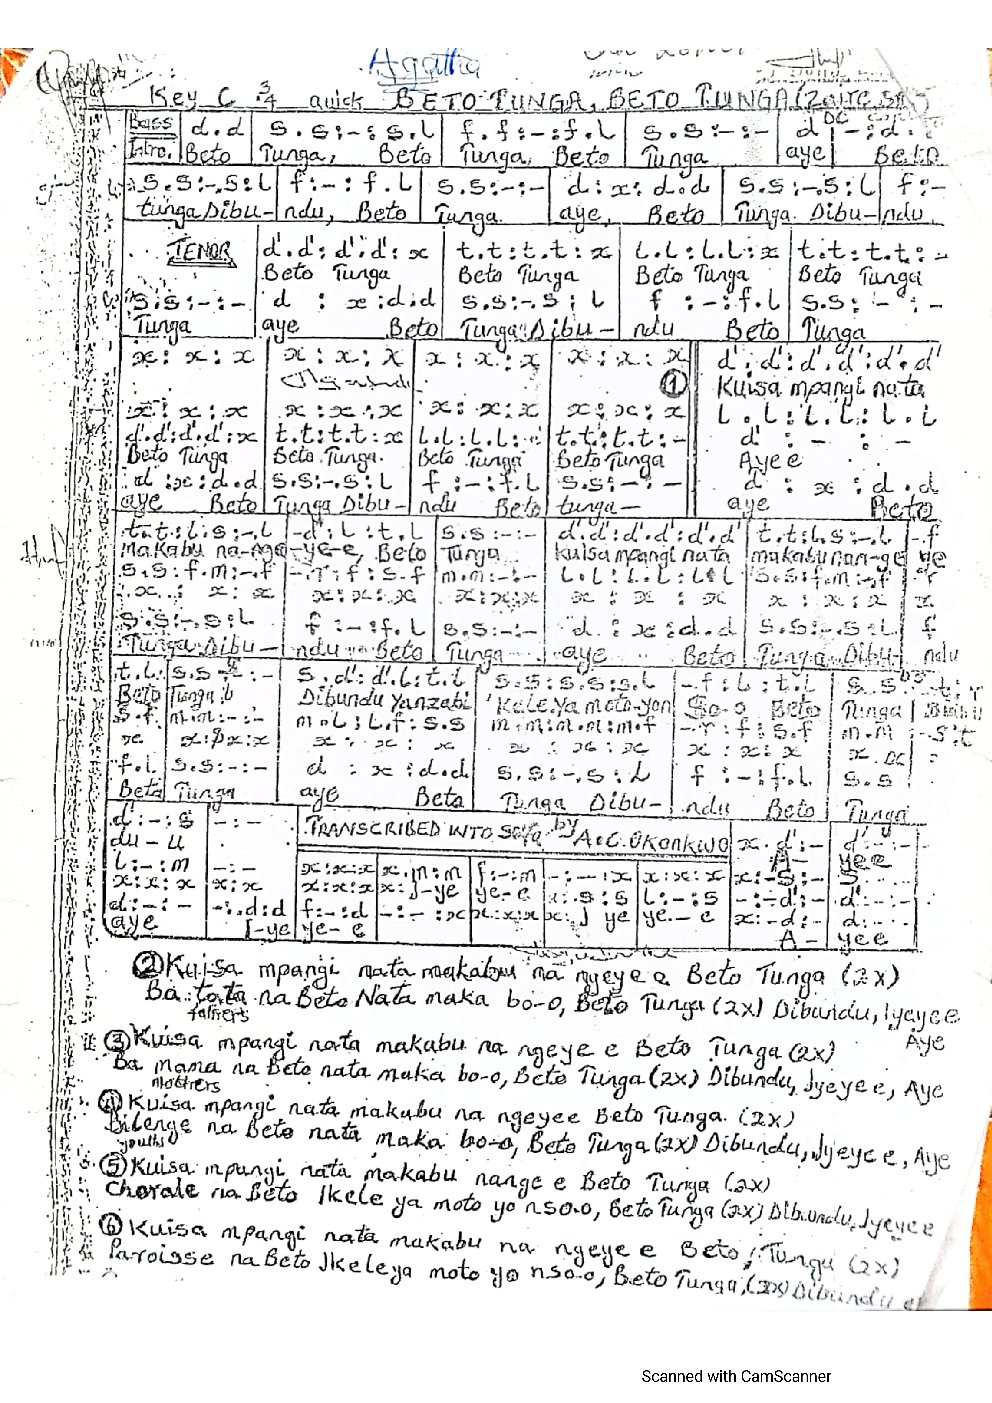 Agatha
Key C 3/4 quick BETO TUNGA, BETO TUNGA (Zaire
Bass d.d s.s:-:s.l f.f:-:f.l s.s:-:- d -:d.
Intro. Beto Tunga, Beto Tunga, Beto Tunga aye Beto
s.s:-.s:l f:-:f.l s.s:-:- d:x:d.d s.s:-.s:l f:-
tunga Dibu- ndu, Beto Tunga. aye, Beto Tunga. Dibu- ndu,
TENOR d'.d':d'.d':x t.t:t.t:x l.l:l.l:x t.t:t.t:-
Beto Tunga Beto Tunga Beto Tunga Beto Tunga
s.s:-:- d:x:d.d s.s:-.s:l f:-:f.l s.s:-:-
Tunga aye Beto Tunga Dibu- ndu Beto Tunga
x:x:x x:x:x x:x:x x:x:x d'.d':d'.d':d'.d'
① Kuisa mpangi nata
x:x:x x:x:x x:x:x x:x:x l.l:l.l:l.l
d'.d':d'.d':x t.t:t.t:x l.l:l.l:-d' t.t:t.t:- d':-:-
Beto Tunga Beto Tunga. Beto Tunga Beto Tunga Ayee
d:x:d.d s.s:-.s:l f:-:f.l s.s:-:- d:x:d.d
aye Beto Tunga Dibu- ndu Beto tunga- aye Beto
t.t:l.s:-.l -d':l:t.l s.s:-:- d'.d':d'.d':d'.d' t.t:l.s:-.l -.f
makabu na-nge -ye-e, Beto Tunga kuisa mpangi nata makabu nan-ge ye
s.s:f.m:-.f -.r:f:s.f m.m:-:- l.l:l.l:l.l s.s:f.m:-.f r
x:x:x x:x:x x:x:x x:x:x x:x:x x
s.s:-.s:l f:-:f.l s.s:-:- d:x:d.d s.s:-.s:l f
Tunga Dibu- ndu Beto Tunga aye Beto Tunga Dibu- ndu
t.l s.s:-:- s.d':d'.l:t.l s.s:s.s:s.l -.f:l:t.l s.s
Beto Tunga Dibundu Yanzabi Kele Ya moto-yon So-o Beto Tunga
s.f m.m:-:- m.l:l.f:s.s m.m:m.m:m.f -.r:f:s.f m.m
x x:x:x x:x:x x:x:x x:x:x x.x
f.l s.s:-:- d:x:d.d s.s:-.s:l f:-:f.l s.s
Beto Tunga aye Beto Tunga Dibu- ndu Beto Tunga
d':-:s -:- TRANSCRIBED INTO Solfa by A.C. OKONKWO x.d':- d':-:-
du-u A- yee
l:-:m -:- x:x:x x:.m:m f:-:m -:-:x x:x:x x:-s:- s
x:x:x x:x x:x:x x:J-ye ye-e x:.s:s l:-:s -:-d:- d:-:-
d:-:- -:.d:d f:-:d -:-:x x:x:x x:J ye ye-e x:-d:- d:-
aye I-ye ye-e A- yee
② Kuisa mpangi nata makabu na ngeye e Beto Tunga (2x)
Ba tata na Beto Nata maka bo-o, Beto Tunga (2x) Dibundu, Iyeyee
fathers Aye
③ Kuisa mpangi nata makabu na ngeye e Beto Tunga (2x)
Ba mama na Beto nata maka bo-o, Beto Tunga (2x) Dibundu, Iyeyee, Aye
mothers
④ Kuisa mpangi nata makabu na ngeyee Beto Tunga. (2x)
Bilenge na Beto nata maka bo-o, Beto Tunga (2x) Dibundu, Iyeyee, Aye
youths
⑤ Kuisa mpangi nata makabu nange e Beto Tunga (2x)
Chorale na Beto Ikele ya moto yo nso.o, Beto Tunga (2x) Dibundu, Iyeyee
⑥ Kuisa mpangi nata makabu na ngeye e Beto, Tunga (2x)
Paroisse na Beto Ikele ya moto yo nso-o, Beto Tunga, (2x) Dibundu
Scanned with CamScanner